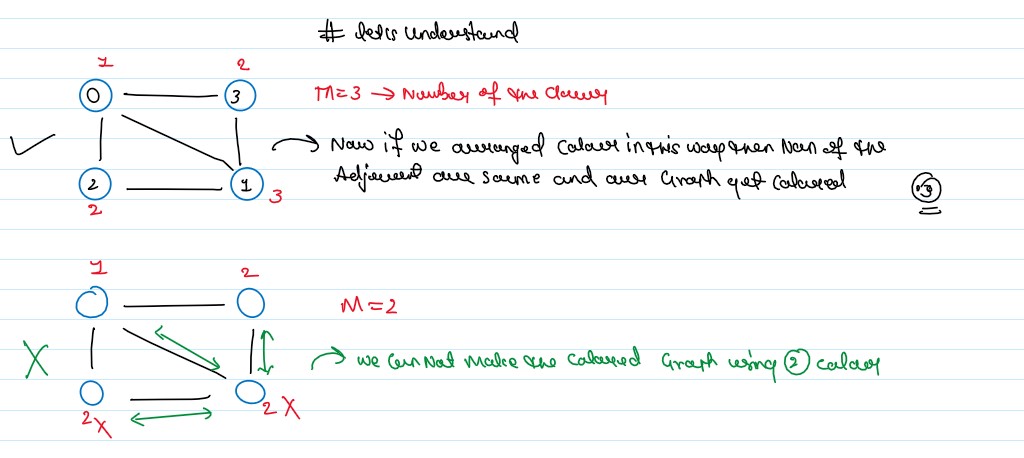 # let's understand
1 2
0 3
M=3 → Number of the colour
Now if we arranged colour in this way then Non of the
Adjecent are same and our Graph get coloured
:3
2 1
2 3
1 2
M=2
X
→ we can not make the coloured Graph using 2 colour
2 X 2 X